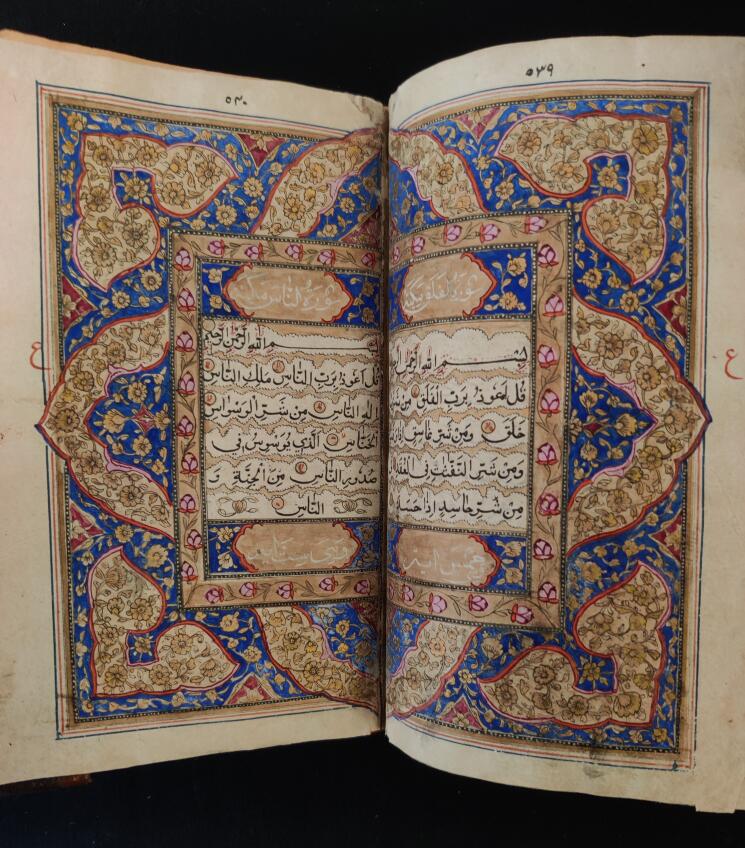 ٥٣٩
ع
سورة الفلق مكية
بسم الله الرحمن
قل اعوذ برب الفلق من شر
خلق ومن شر غاسق اذا
ومن شر النفثت فى العقد
من شر حاسد اذا حسد
خمس اية
٥٤٠
ع
سورة الناس مكية
بسم الله الرحمن الرحيم
قل اعوذ برب الناس ملك الناس
اله الناس من شر الوسواس
الخناس الذي يوسوس في
صدور الناس من الجنة و
الناس
وهي ست